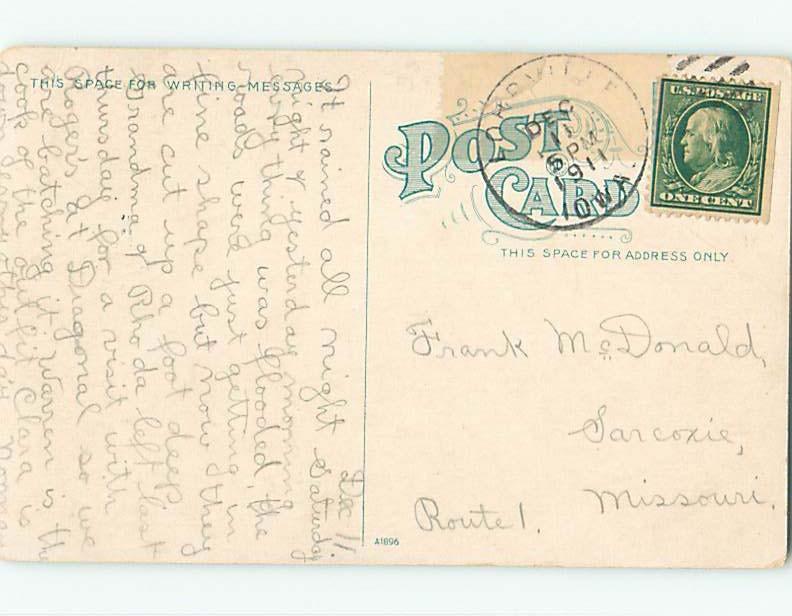 THIS SPACE FOR WRITING MESSAGES.
POST
CARD
DEC
11
5 PM
1911
IOWA
U.S. POSTAGE
ONE CENT
THIS SPACE FOR ADDRESS ONLY.
Frank McDonald,
Sarcoxie,
Missouri.
Route 1.
A1896
Dec 11.
It rained all night Saturday
night & yesterday morning
evry thing was flooded, the
roads were just getting in
fine shape but now they
are cut up a foot deep
Grandma & Rhoda left last
thursday for a visit with
Roger's at Diagonal so we
are batching it Warren is the
cook of the outfit Clara is
down